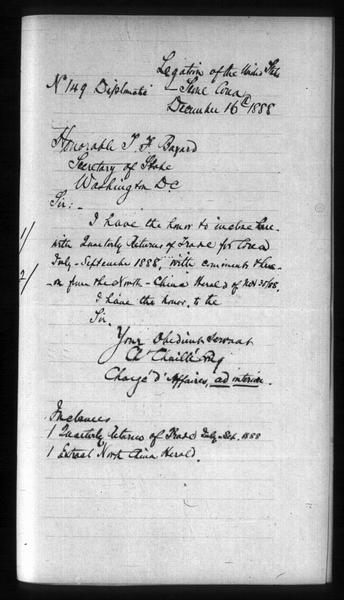 Legation of the United States
Nº 149 Diplomatic
Seoul Corea
December 16th 1888
Honorable T. F. Bayard
Secretary of State
Washington D.C.
Sir:-
I have the honor to inclose here-
1/ with Quarterly Returns of Trade for Corea
2/ July - September 1888, with comments there-
on from the North - China Herald of Nov
I have the honor, to be
Sir
Your Obedient Servant
Chaillé
Chargé d'Affaires, ad interim.
Inclosures
1 Quarterly Returns of Trade July-Sept. 1888
1 Extract North China Herald.